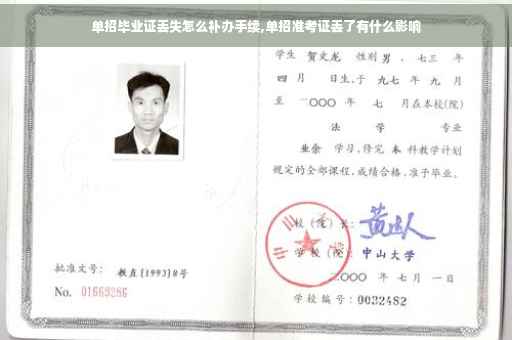 单招毕业证丢失怎么补办手续,单招准考证丢了有什么影响
学生 贺文龙 性别 男 、七三 年
四 月 日生,于 九七 年 九 月
至 二〇〇〇 年 七 月在本校(院)
法 学 专业
业余 学习,修完 本 科教学计划
规定的全部课程,成绩合格,准予毕业。
校(院)长:
学校(院): 中山大学
批准文号: 教直[1993]8号
二〇〇〇 年 七月 一日
No. 01669286
学校编号: 0032482